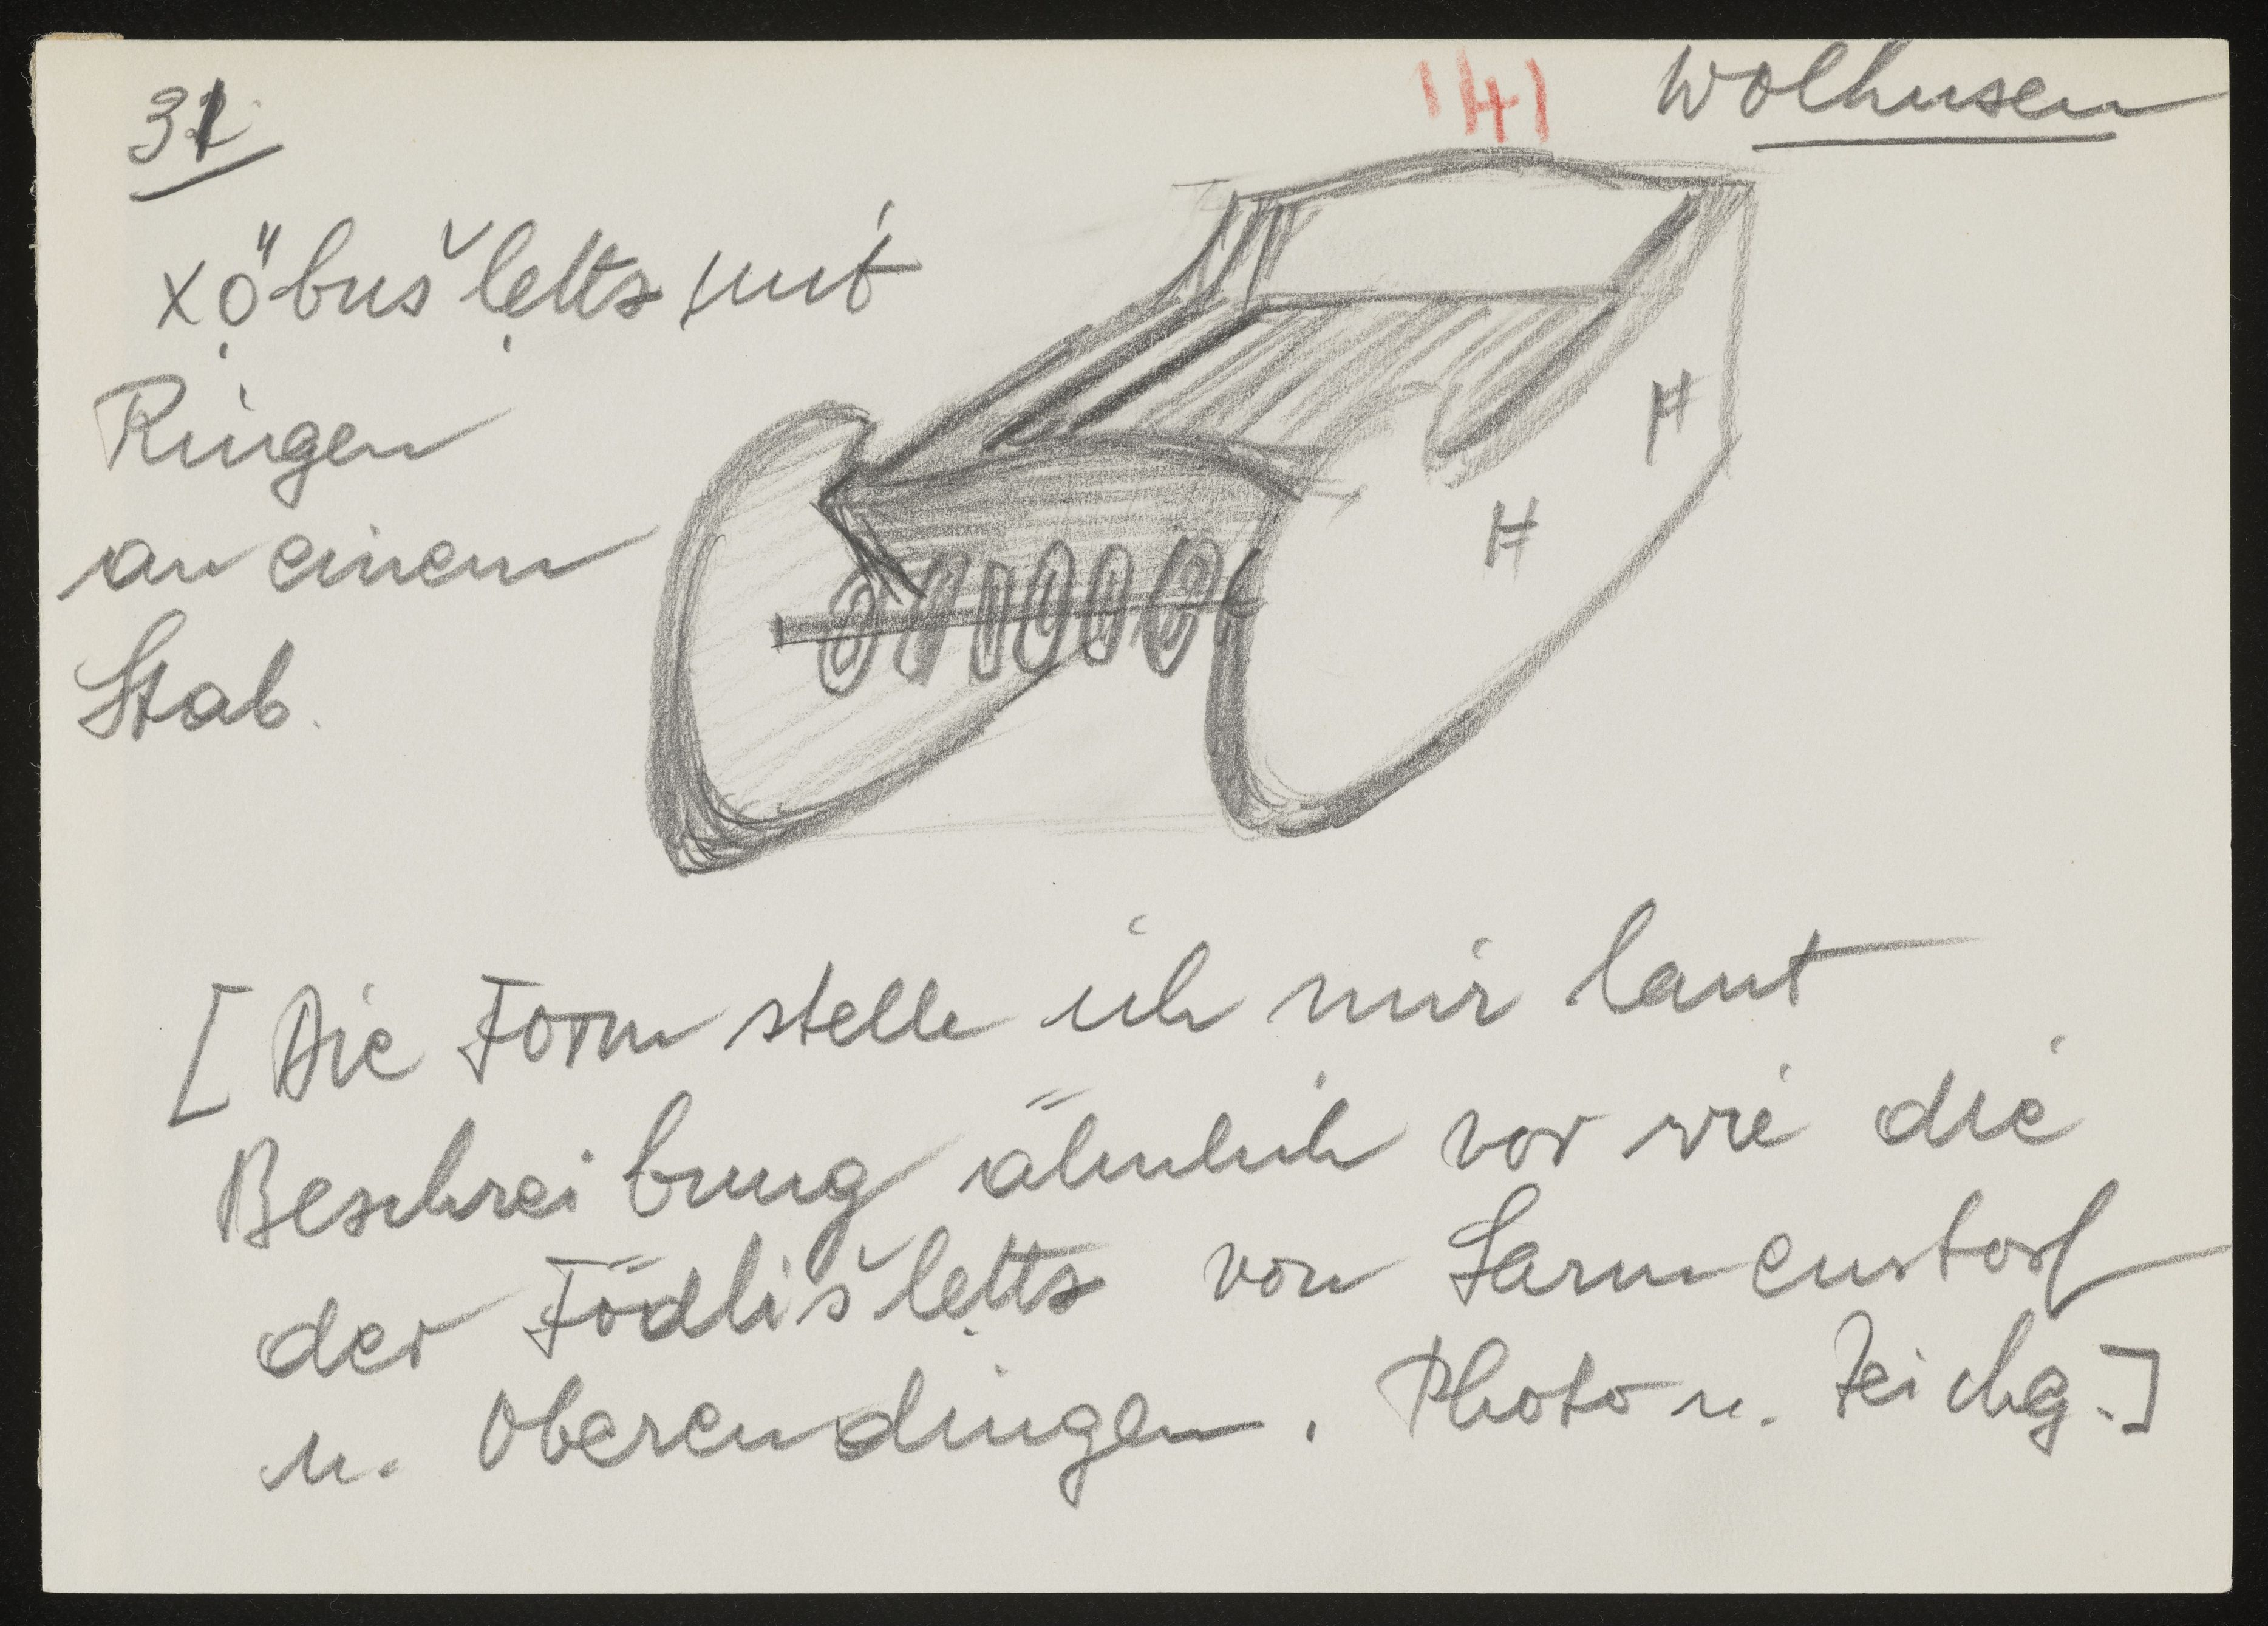 31
141
Wolhusen
χọ̈buš lẹtts mit
Ringen
an einem
Stab.
H
H
[Die Form stelle ich mir laut
Beschreibung ähnlich vor wie die
der Födlišlẹtts von Sarmenstorf
u. Oberendingen. Photo u. Zeichg.]